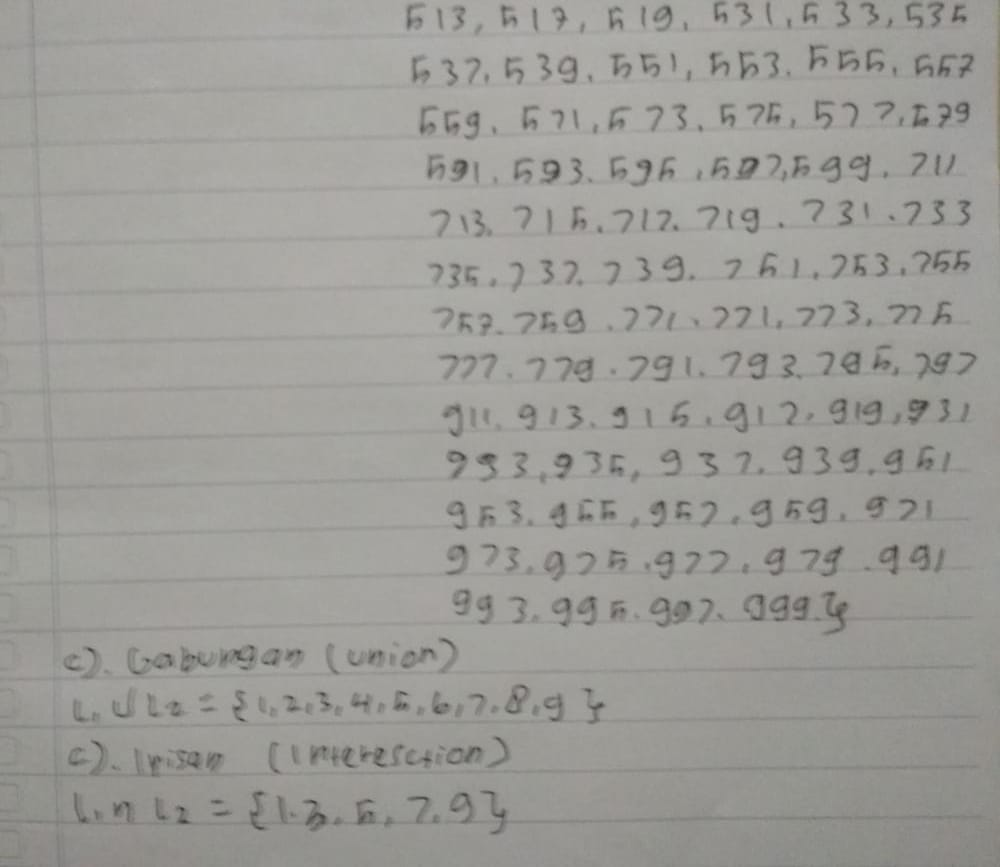 513, 517, 519, 531, 533, 535
537, 539, 551, 553, 555, 557
559, 571, 573, 575, 577, 579
591, 593, 595, 597, 599, 711
713, 715, 717, 719, 731, 733
735, 737, 739, 751, 753, 755
757, 759, 771, 771, 773, 775
777, 779, 791, 793, 795, 797
911, 913, 915, 917, 919, 931
933, 935, 937, 939, 951
953, 955, 957, 959, 971
973, 975, 977, 979, 991
993, 995, 997, 999}
c). Gabungan (union)
L₁ ∪ L₂ = {1, 2, 3, 4, 5, 6, 7, 8, 9}
c). Irisan (Interesction)
L₁ ∩ L₂ = {1, 3, 5, 7, 9}